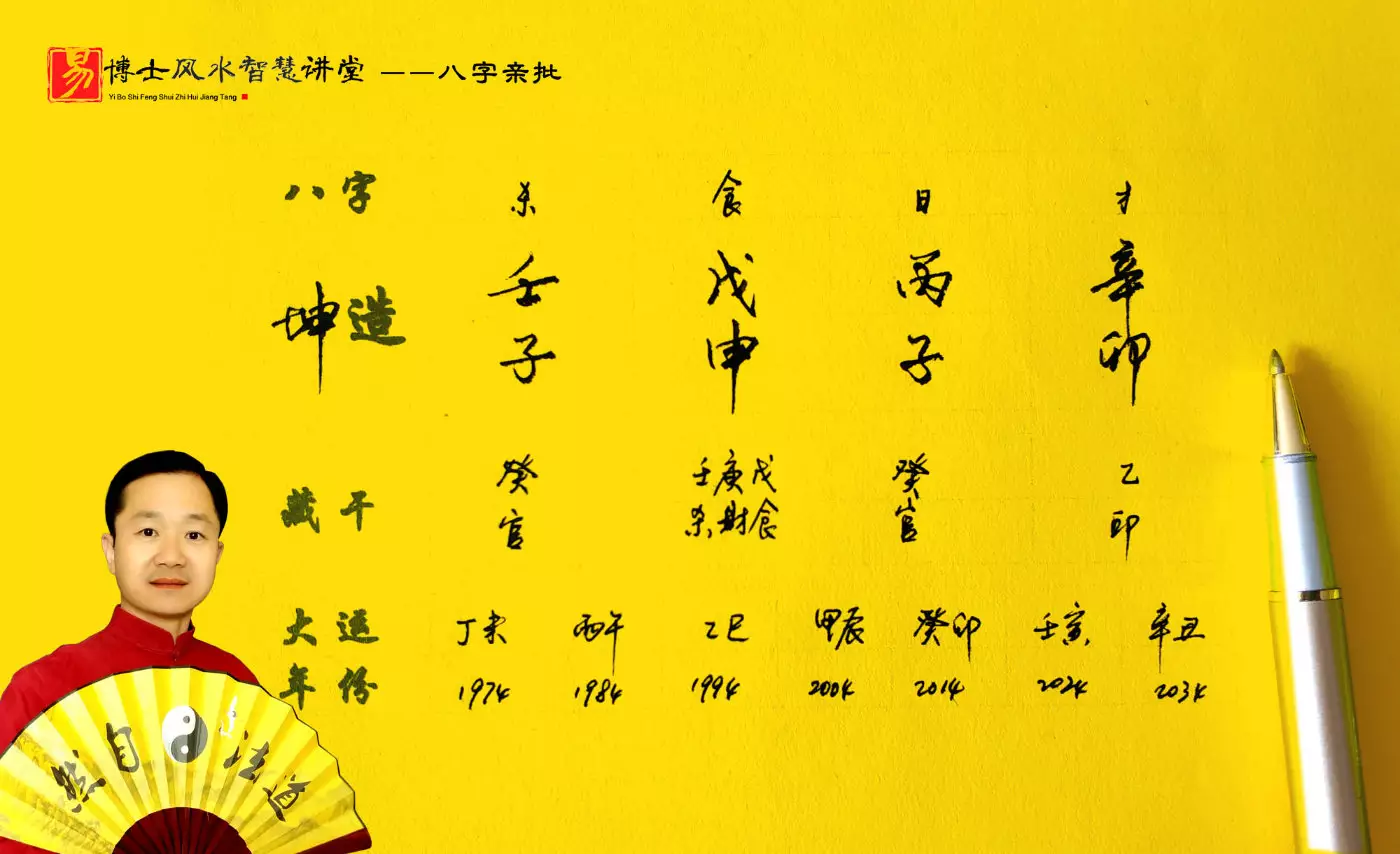 易 博士风水智慧讲堂 ——八字亲批
Yi Bo Shi Feng Shui Zhi Hui Jiang Tang
八字 杀 食 日 才
坤造 壬 戊 丙 辛
子 申 子 卯
藏干 癸 壬庚戊 癸 乙
官 杀财食 官 印
大运 丁未 丙午 乙巳 甲辰 癸卯 壬寅 辛丑
年份 1974 1984 1994 2004 2014 2024 2034
然自法道